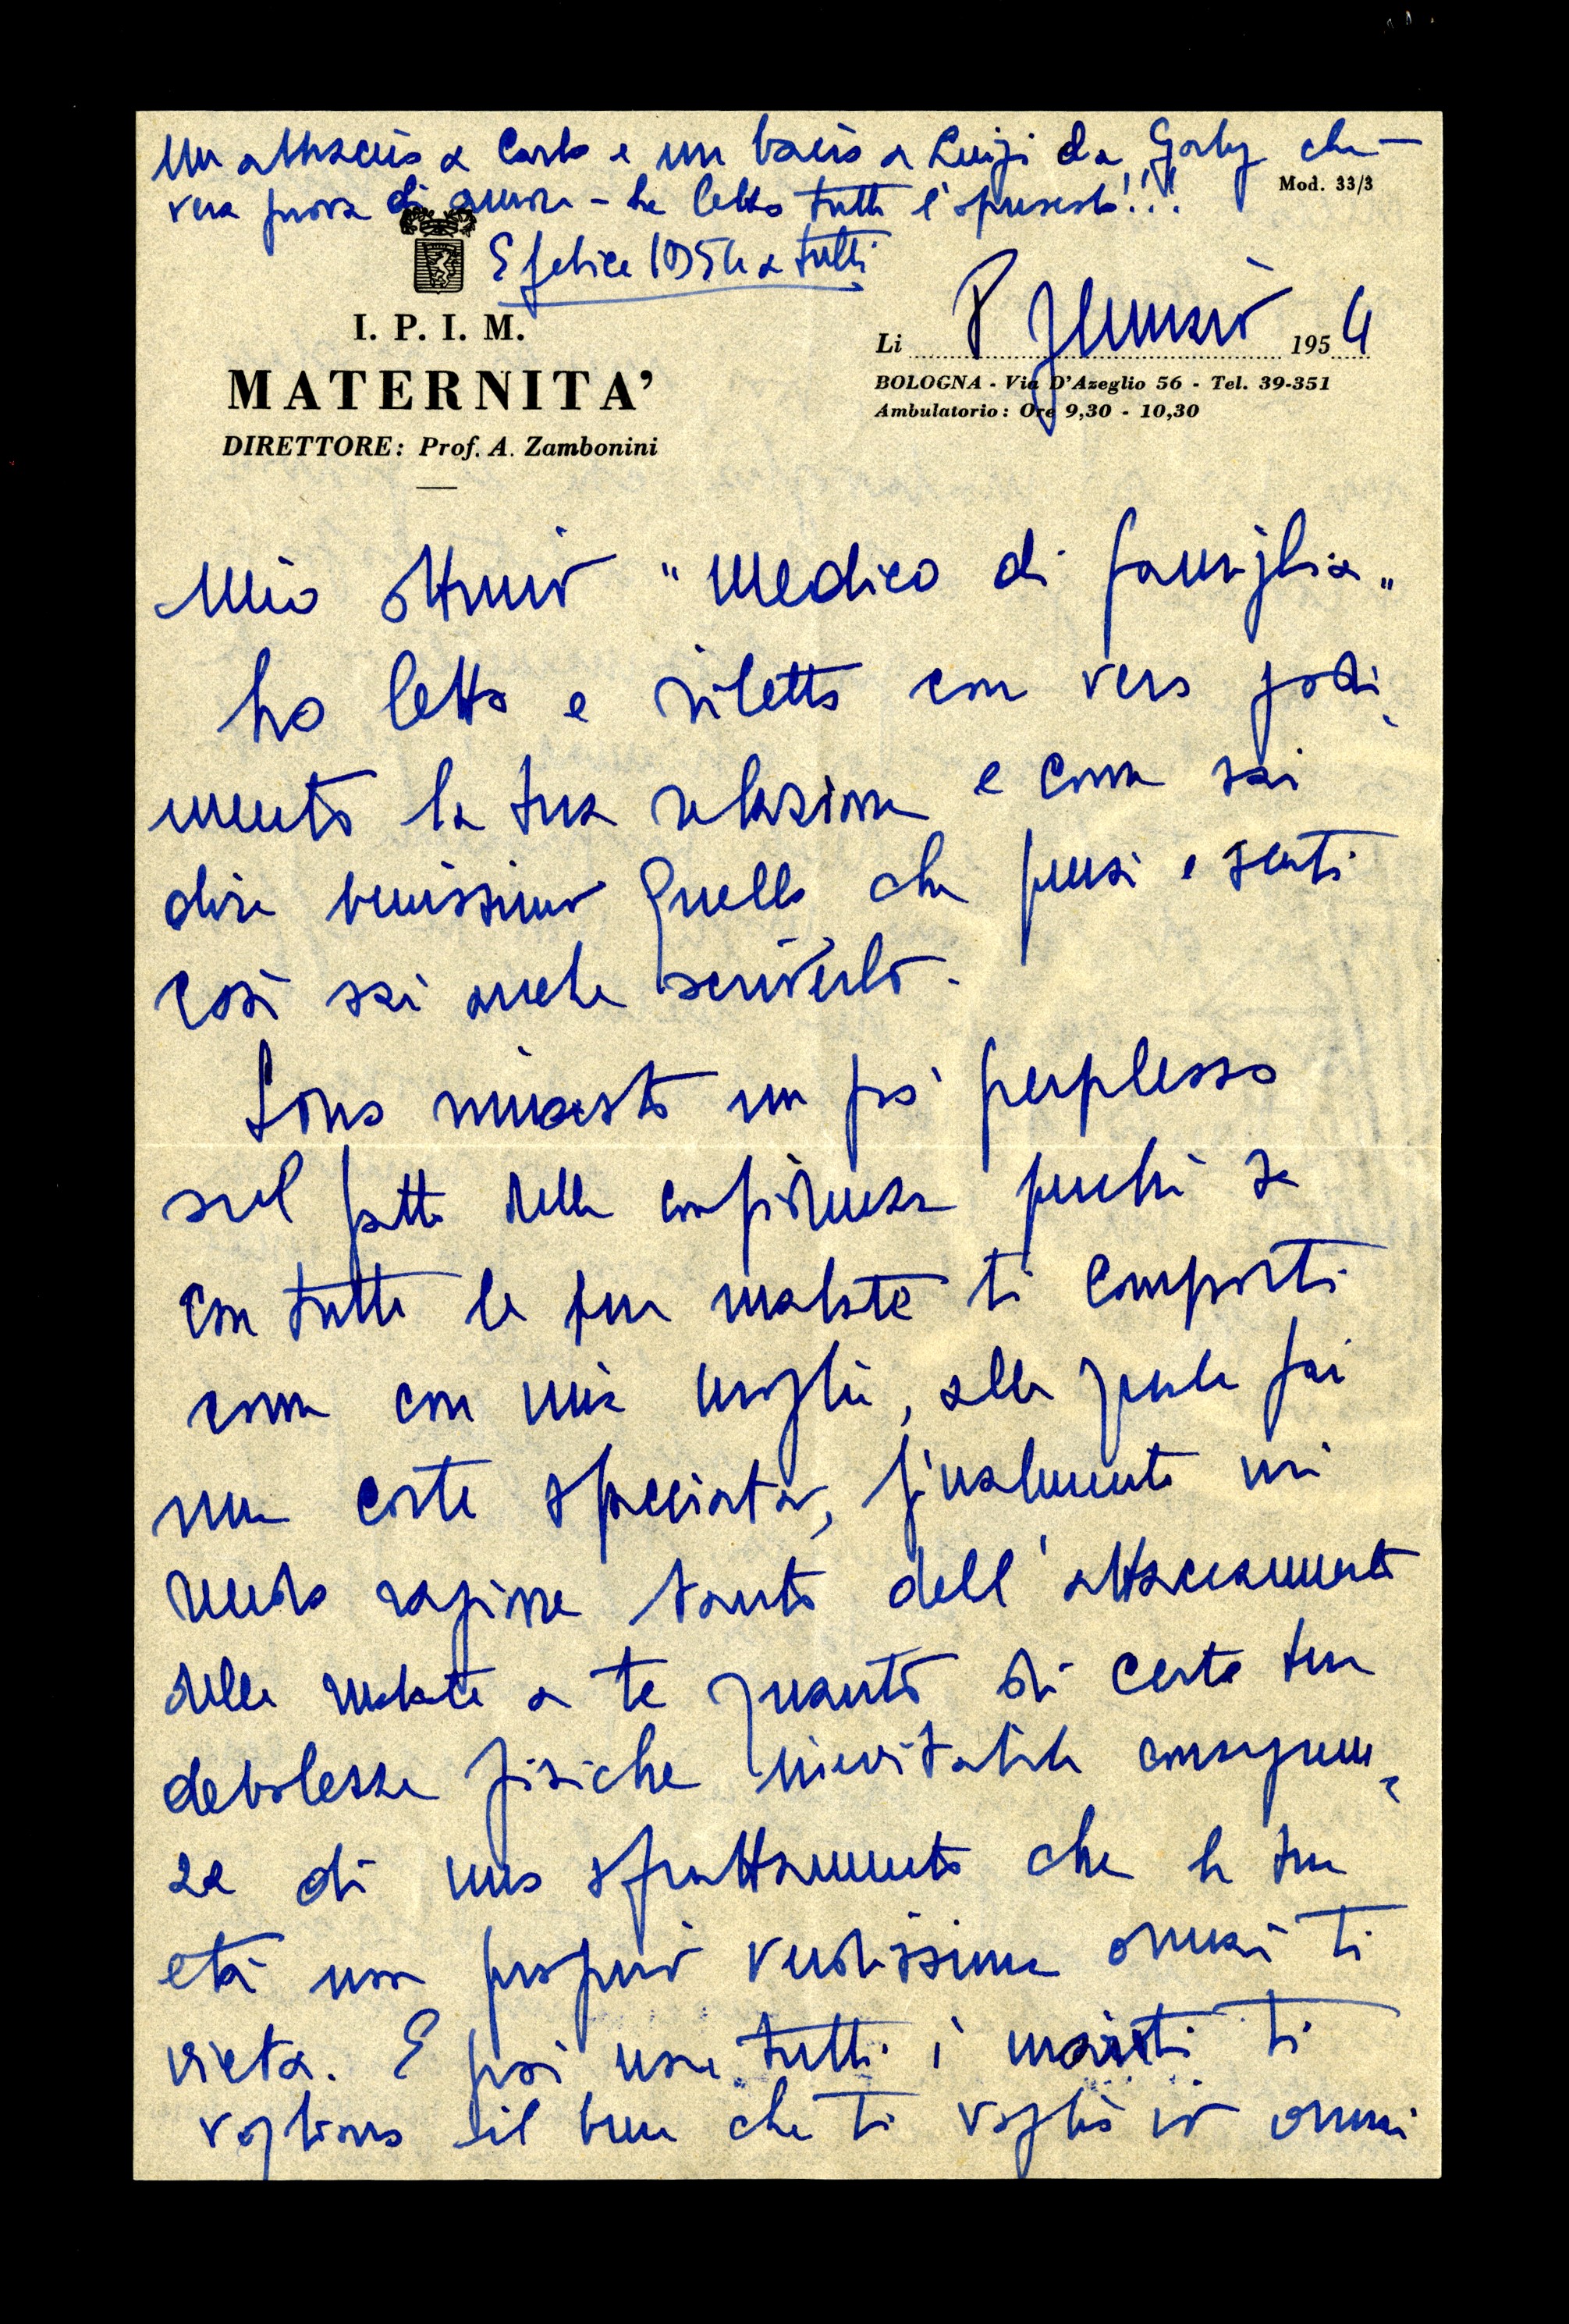 Un abbraccio a Carlo e un bacio a Luigi da Gaby che –
vera prova di amore – ha letto tutto l'opuscolo!!!
Mod. 33/3
E felice 1954 a tutti
I. P. I. M.
MATERNITA'
DIRETTORE: Prof. A. Zambonini
Li 8 Gennaio 1954
BOLOGNA - Via D'Azeglio 56 - Tel. 39-351
Ambulatorio: Ore 9,30 - 10,30
Mio ottimo "medico di famiglia"
ho letto e riletto con vero godi-
mento la tua relazione e come sai
dire benissimo quello che pensi e senti
così sai anche scriverlo.
Sono rimasto un po' perplesso
sul fatto della confidenza perché se
con tutte le tue malate ti comporti
come con mia moglie, alla quale fai
una corte spacciata, finalmente mi
rendo ragione tanto dell'attaccamento
delle malate a te quanto di certe tue
debolezze fisiche inevitabile conseguen-
za di uno sfruttamento che la tua
età non proprio verdissima ormai ti
vieta. E poi non tutti i mariti ti
vogliono il bene che ti voglio io ormai